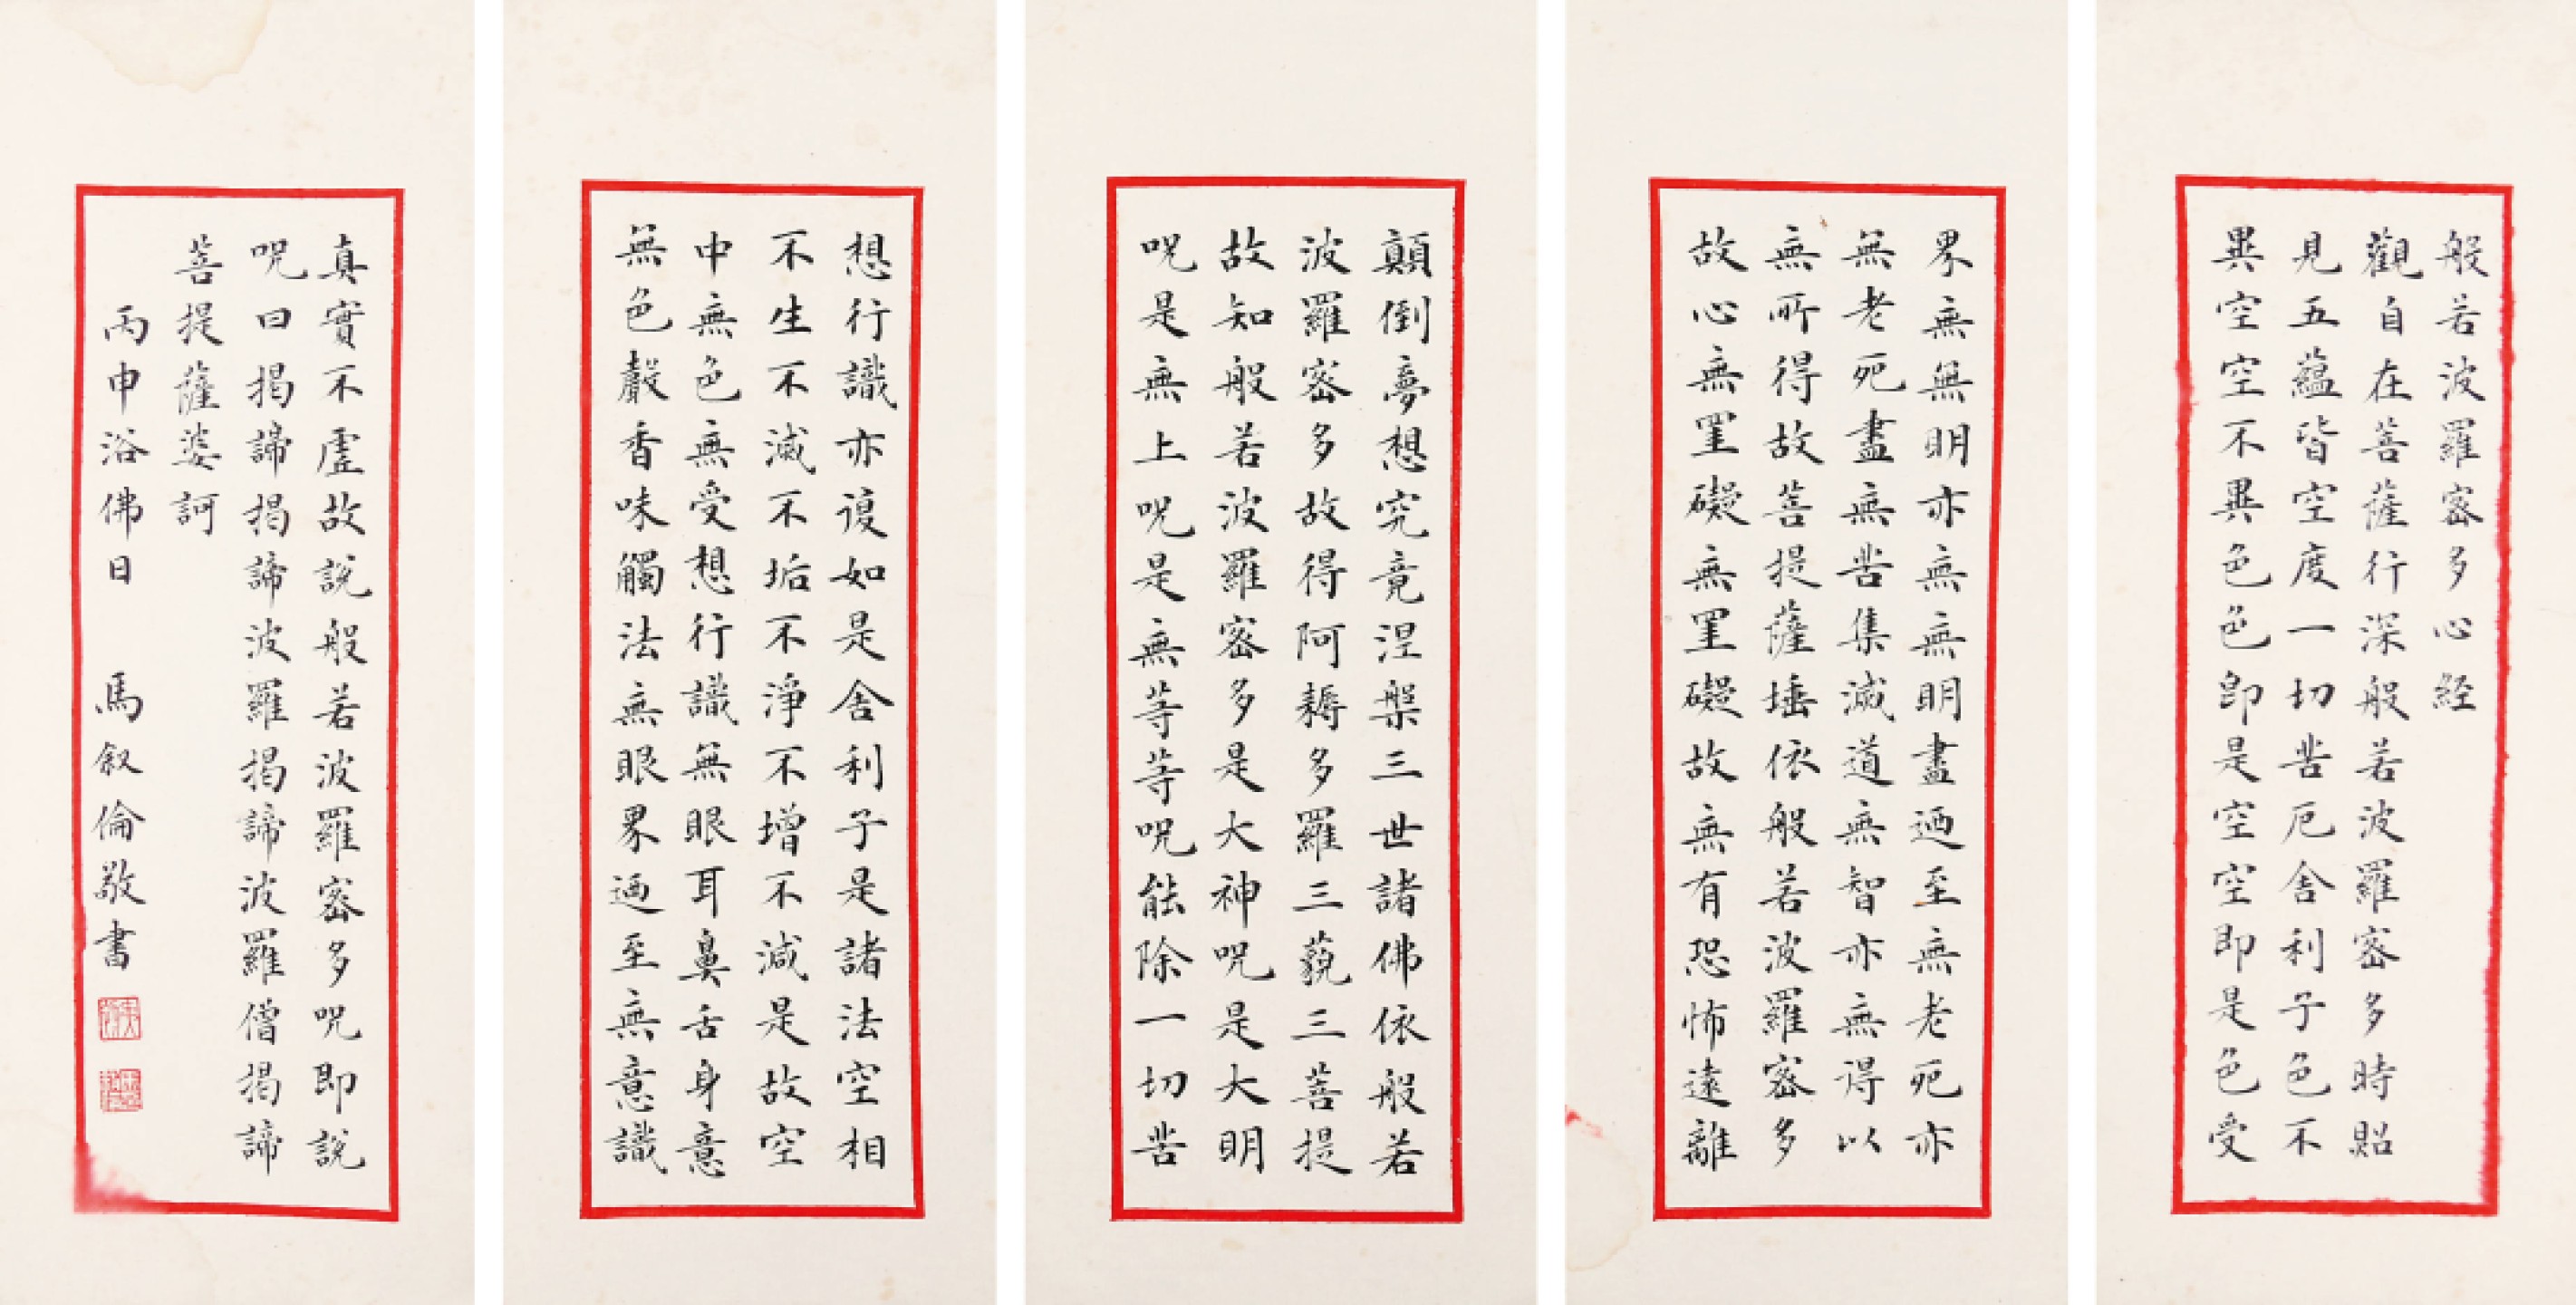 般若波羅密多心経
觀自在菩薩行深般若波羅密多時照
見五蘊皆空度一切苦厄舍利子色不
異空空不異色色即是空空即是色受
界無無明亦無無明盡迺至無老死亦
無老死盡無苦集滅道無智亦無得以
無所得故菩提薩埵依般若波羅密多
故心無罣礙無罣礙故無有恐怖遠離
顛倒夢想究竟涅槃三世諸佛依般若
波羅密多故得阿耨多羅三藐三菩提
故知般若波羅密多是大神呪是大明
呪是無上呪是無等等呪能除一切苦
想行識亦復如是舍利子是諸法空相
不生不滅不垢不淨不增不減是故空
中無色無受想行識無眼耳鼻舌身意
無色聲香味觸法無眼界迺至無意識
真實不虛故說般若波羅密多呪即說
呪曰揭諦揭諦波羅揭諦波羅僧揭諦
菩提薩婆訶
丙申浴佛日 馬叙倫敬書